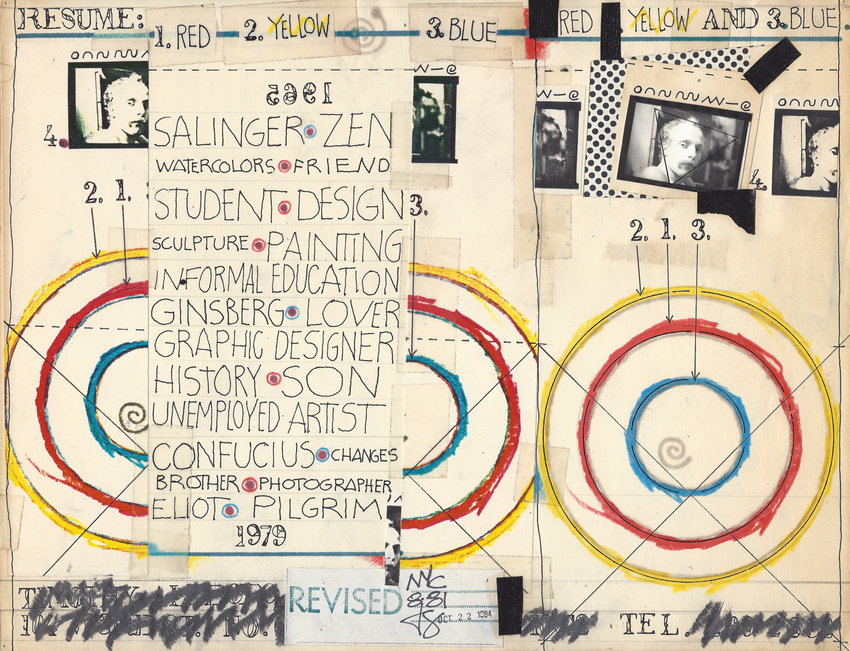 RESUME:
1. RED 2. YELLOW 3. BLUE
RED YELLOW AND 3. BLUE
1965
SALINGER ZEN
WATERCOLORS FRIEND
STUDENT DESIGN
SCULPTURE PAINTING
INFORMAL EDUCATION
GINSBERG LOVER
GRAPHIC DESIGNER
HISTORY SON
UNEMPLOYED ARTIST
CONFUCIUS CHANGES
BROTHER PHOTOGRAPHER
ELIOT PILGRIM
1979
4.
2. 1.
3.
4.
2. 1. 3.
REVISED
OCT 22 1984
TEL.